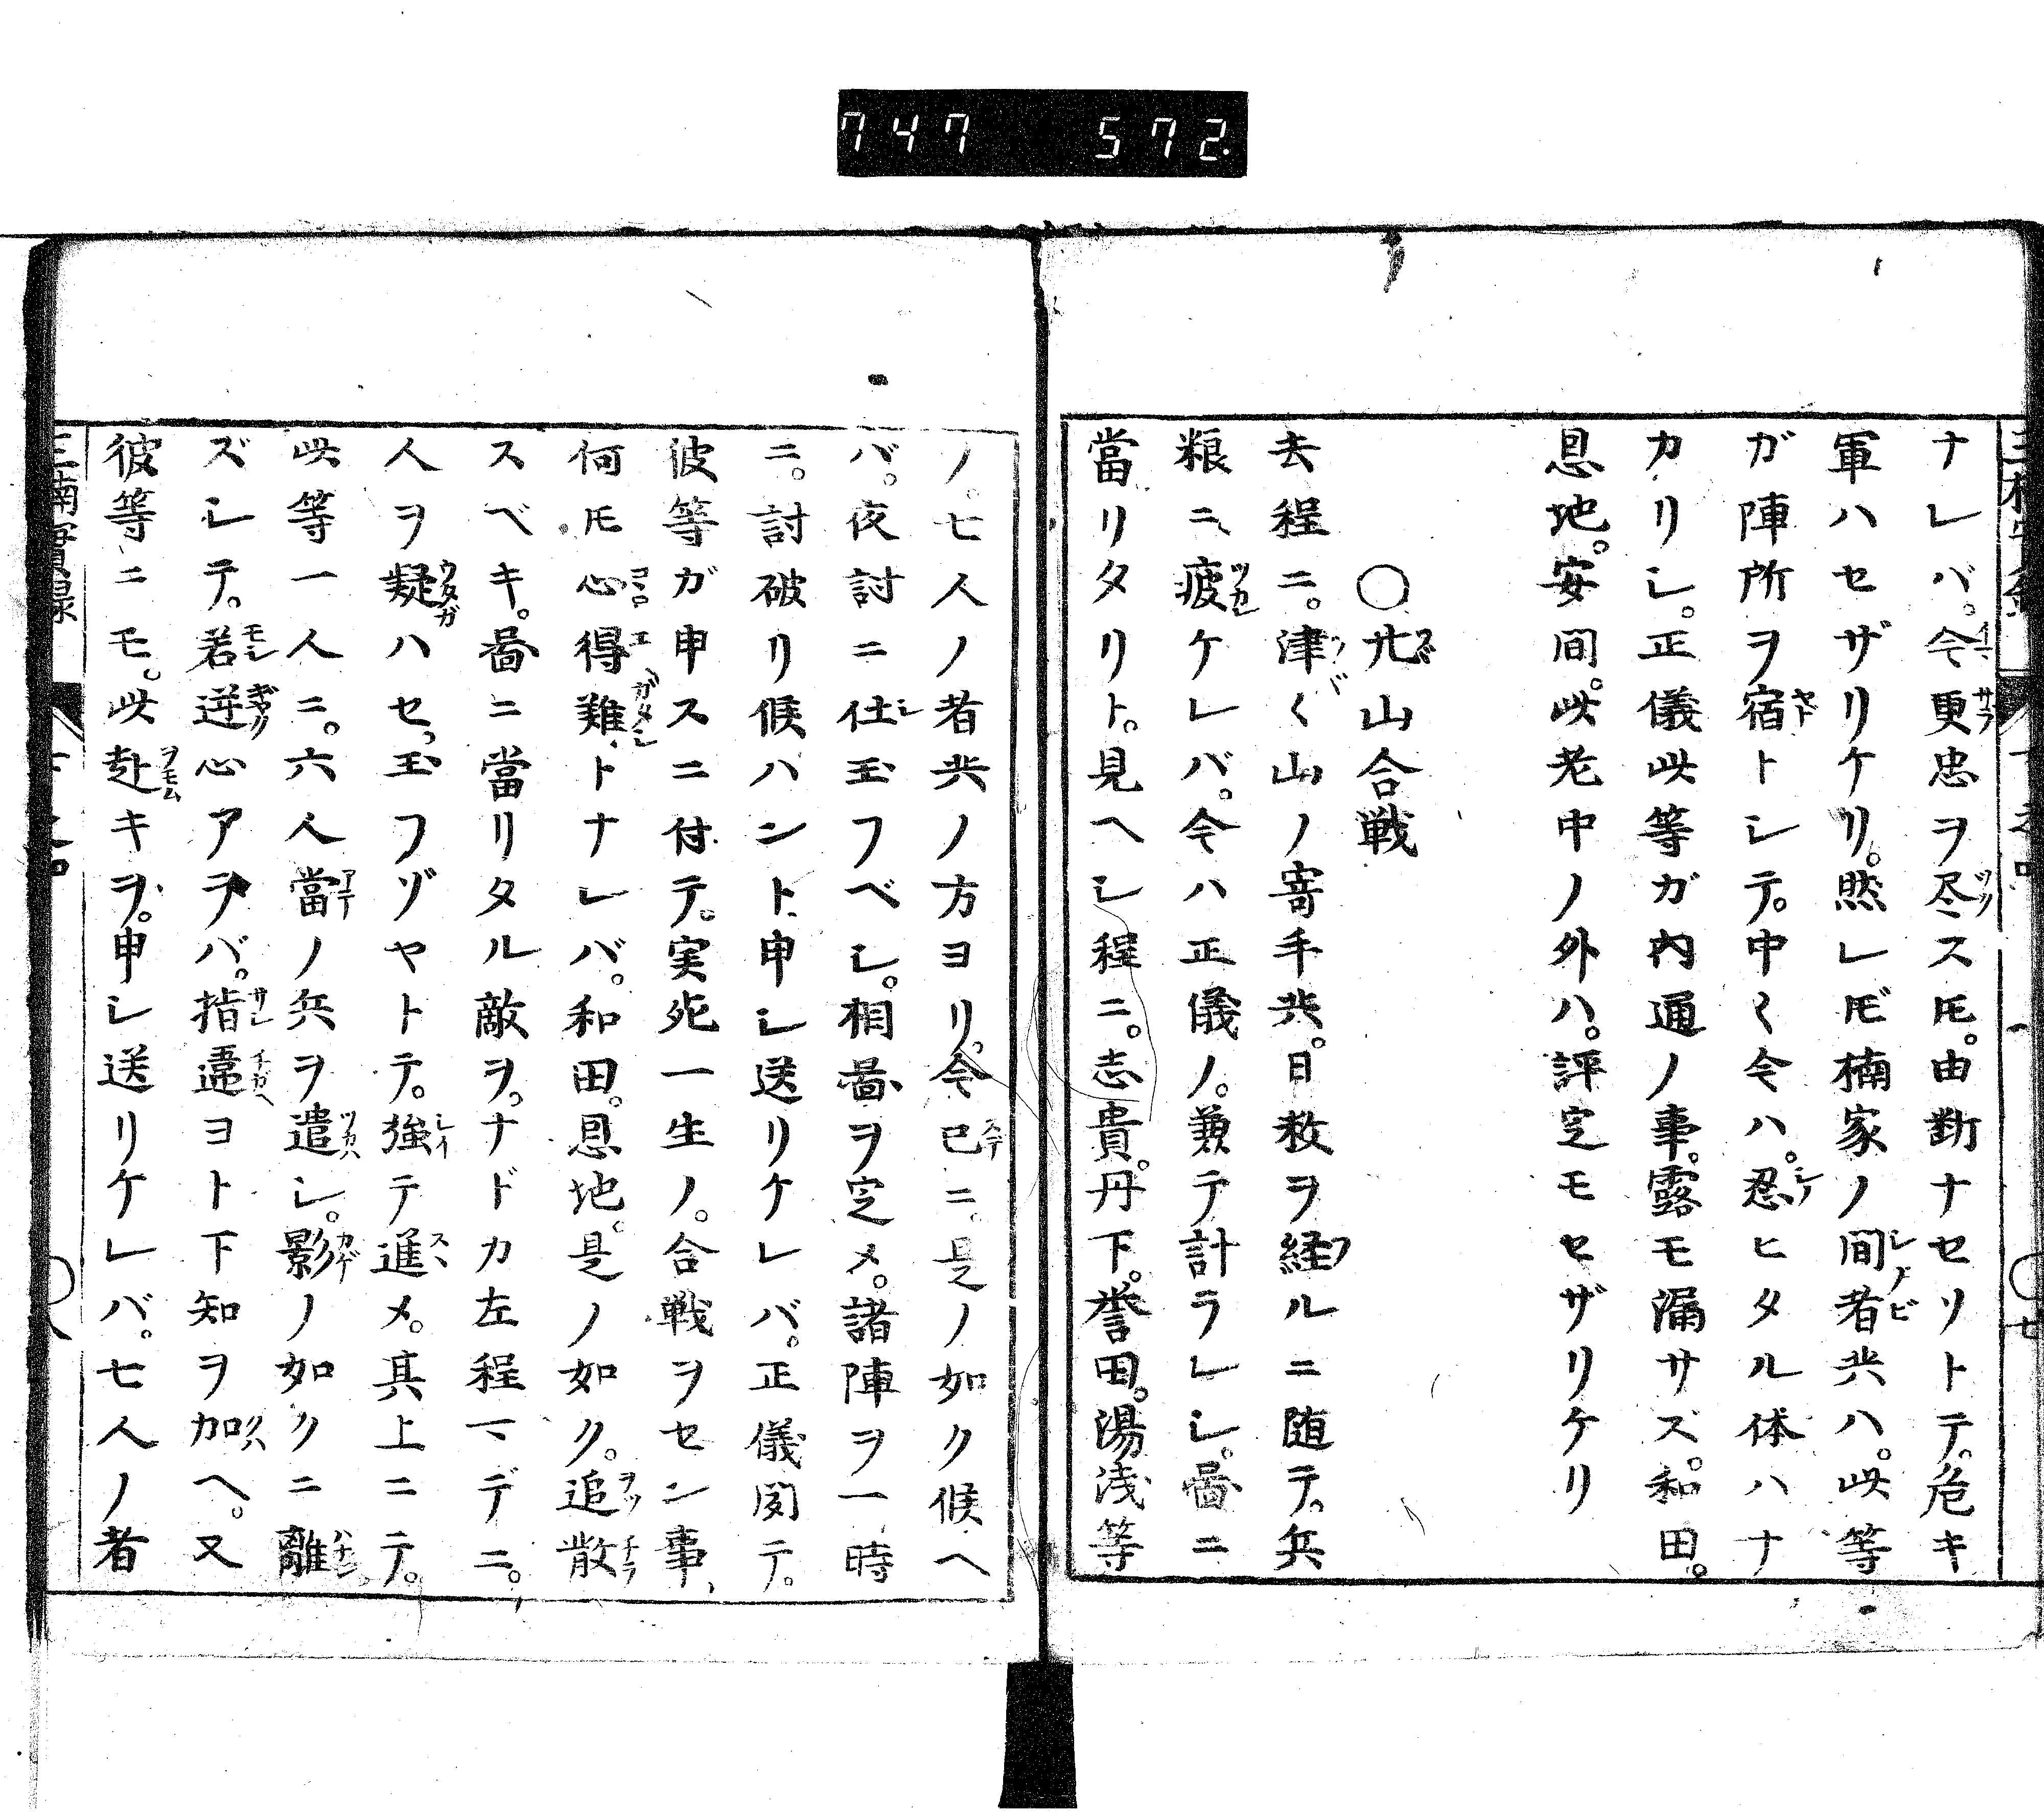 747 572.
ナレバ。今更忠ヲ尽ス𪜈。由断ナセソトテ。危キ
軍ハセザリケリ。然レ𪜈楠家ノ間者共ハ。此等
ガ陣所ヲ宿トシテ。中〱今ハ。忍ヒタル体ハナ
カリシ。正儀此等ガ内通ノ事。露モ漏サズ。和田。
恩地。安間。此老中ノ外ハ。評定モセザリケリ
〇𠦃山合戦
去程ニ。津〱山ノ寄手共。日数ヲ経ルニ随テ。兵
粮ニ疲ケレバ。今ハ正儀ノ。兼テ計ラレシ。啚ニ
當リタリト。見ヘシ程ニ。志貴。丹下。誉田。湯浅等
ノ。七人ノ者共ノ方ヨリ。今已ニ。是ノ如ク候ヘ
バ。夜討ニ仕玉フベシ。相啚ヲ定メ。諸陣ヲ一時
ニ。討破リ候ハント申シ送リケレバ。正儀聞テ。
彼等ガ申スニ付テ。実死一生ノ。合戦ヲセン事、
何𪜈心得難トナレバ。和田。恩地。是ノ如ク。追散
スベキ。啚ニ當リタル敵ヲ。ナドカ左程マデニ。
人ヲ疑ハセ玉フゾヤトテ。強テ進メ。其上ニテ。
此等一人ニ。六人當ノ兵ヲ遣シ。影ノ如クニ離
ズシテ。若逆心アラバ。指違ヨト下知ヲ加ヘ。又
彼等ニモ。此赴キヲ。申シ送リケレバ。七人ノ者
三楠實録